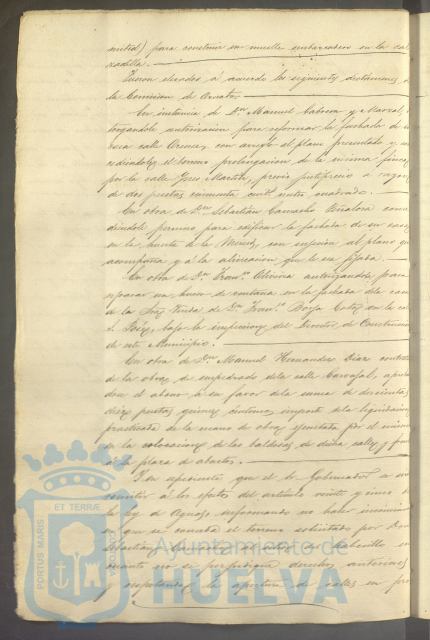 mitid) para construir un muelle embarcadero en la cal
zadilla.
Fueron elevados á acuerdo los siguientes dictámenes de
la Comision de Ornato.
En instancia de Dn Manuel Cabrera y Marzal, o
torgándole autorizacion para reformar la fachada de
casa calle Orense, con arreglo al plano presentado y
cediéndole el terreno prolongacion de la misma finca
por la calle previo justiprecio á razon
de dos pesetas cincuenta cents metro cuadrado.
En otra de Dn Sebastián Camacho Peñalosa conce
diéndole permiso para edificar la fachada de su casa
en la huerta de la Merced, con sujecion al plano que
acompaña y á la alineacion que le sea fijada.
En otra de Dn Franco Oliveira autorizándole para
reparar un hueco de ventana en la fachada dela casa
de la Sra Viuda de Dn Franco Borja en la calle
bajo la inspeccion del Director de
de este Municipio.
En otra de Dn Manuel Hernandez Diaz contrat
de la obra de empedrado dela calle Carvajal, apro
dose el abono á su favor dela suma de doscientas
diez pesetas quince céntimos importe dela liquidacion
practicada de la mano de obra ejecutada por el mismo
en la colocacion de las baldosas de dicha calle y
á la plaza de abastos.
En espediente que el Sr Gobernador
remitir á los efectos del artículo veinte y cinco de
la ley de Aguas informando no haber inconveniente
en que se conceda el terreno solicitado por Don
Sebastian al sitio del Cabecillo en
cuanto no se perjudique derechos anteriores
y respetando la apertura de calles en pro
PORTUS MARIS ET TERRÆ
Ayuntamiento de
HUELVA